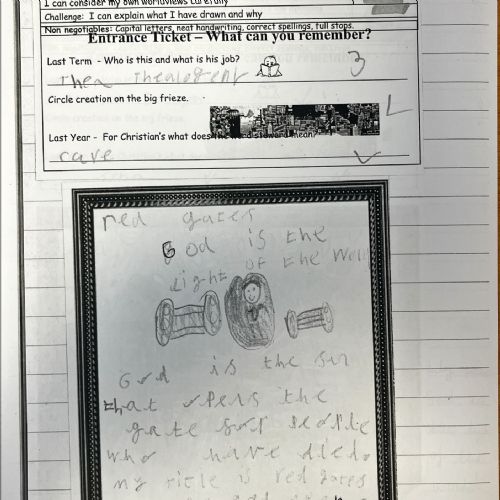 I can consider my own worldviews carefully
Challenge: I can explain what I have drawn and why
Non negotiables: Capital letters, neat handwriting, correct spellings, full stops.
Entrance Ticket – What can you remember?
Last Term - Who is this and what is his job?
Thea Thealogent 3
Circle creation on the big frieze.
Last Year - For Christian's what does the word steward mean?
care
red gates
God is the
light of the Wor
God is the sun
that opens the
gate for people
who have died.
my title is red gates